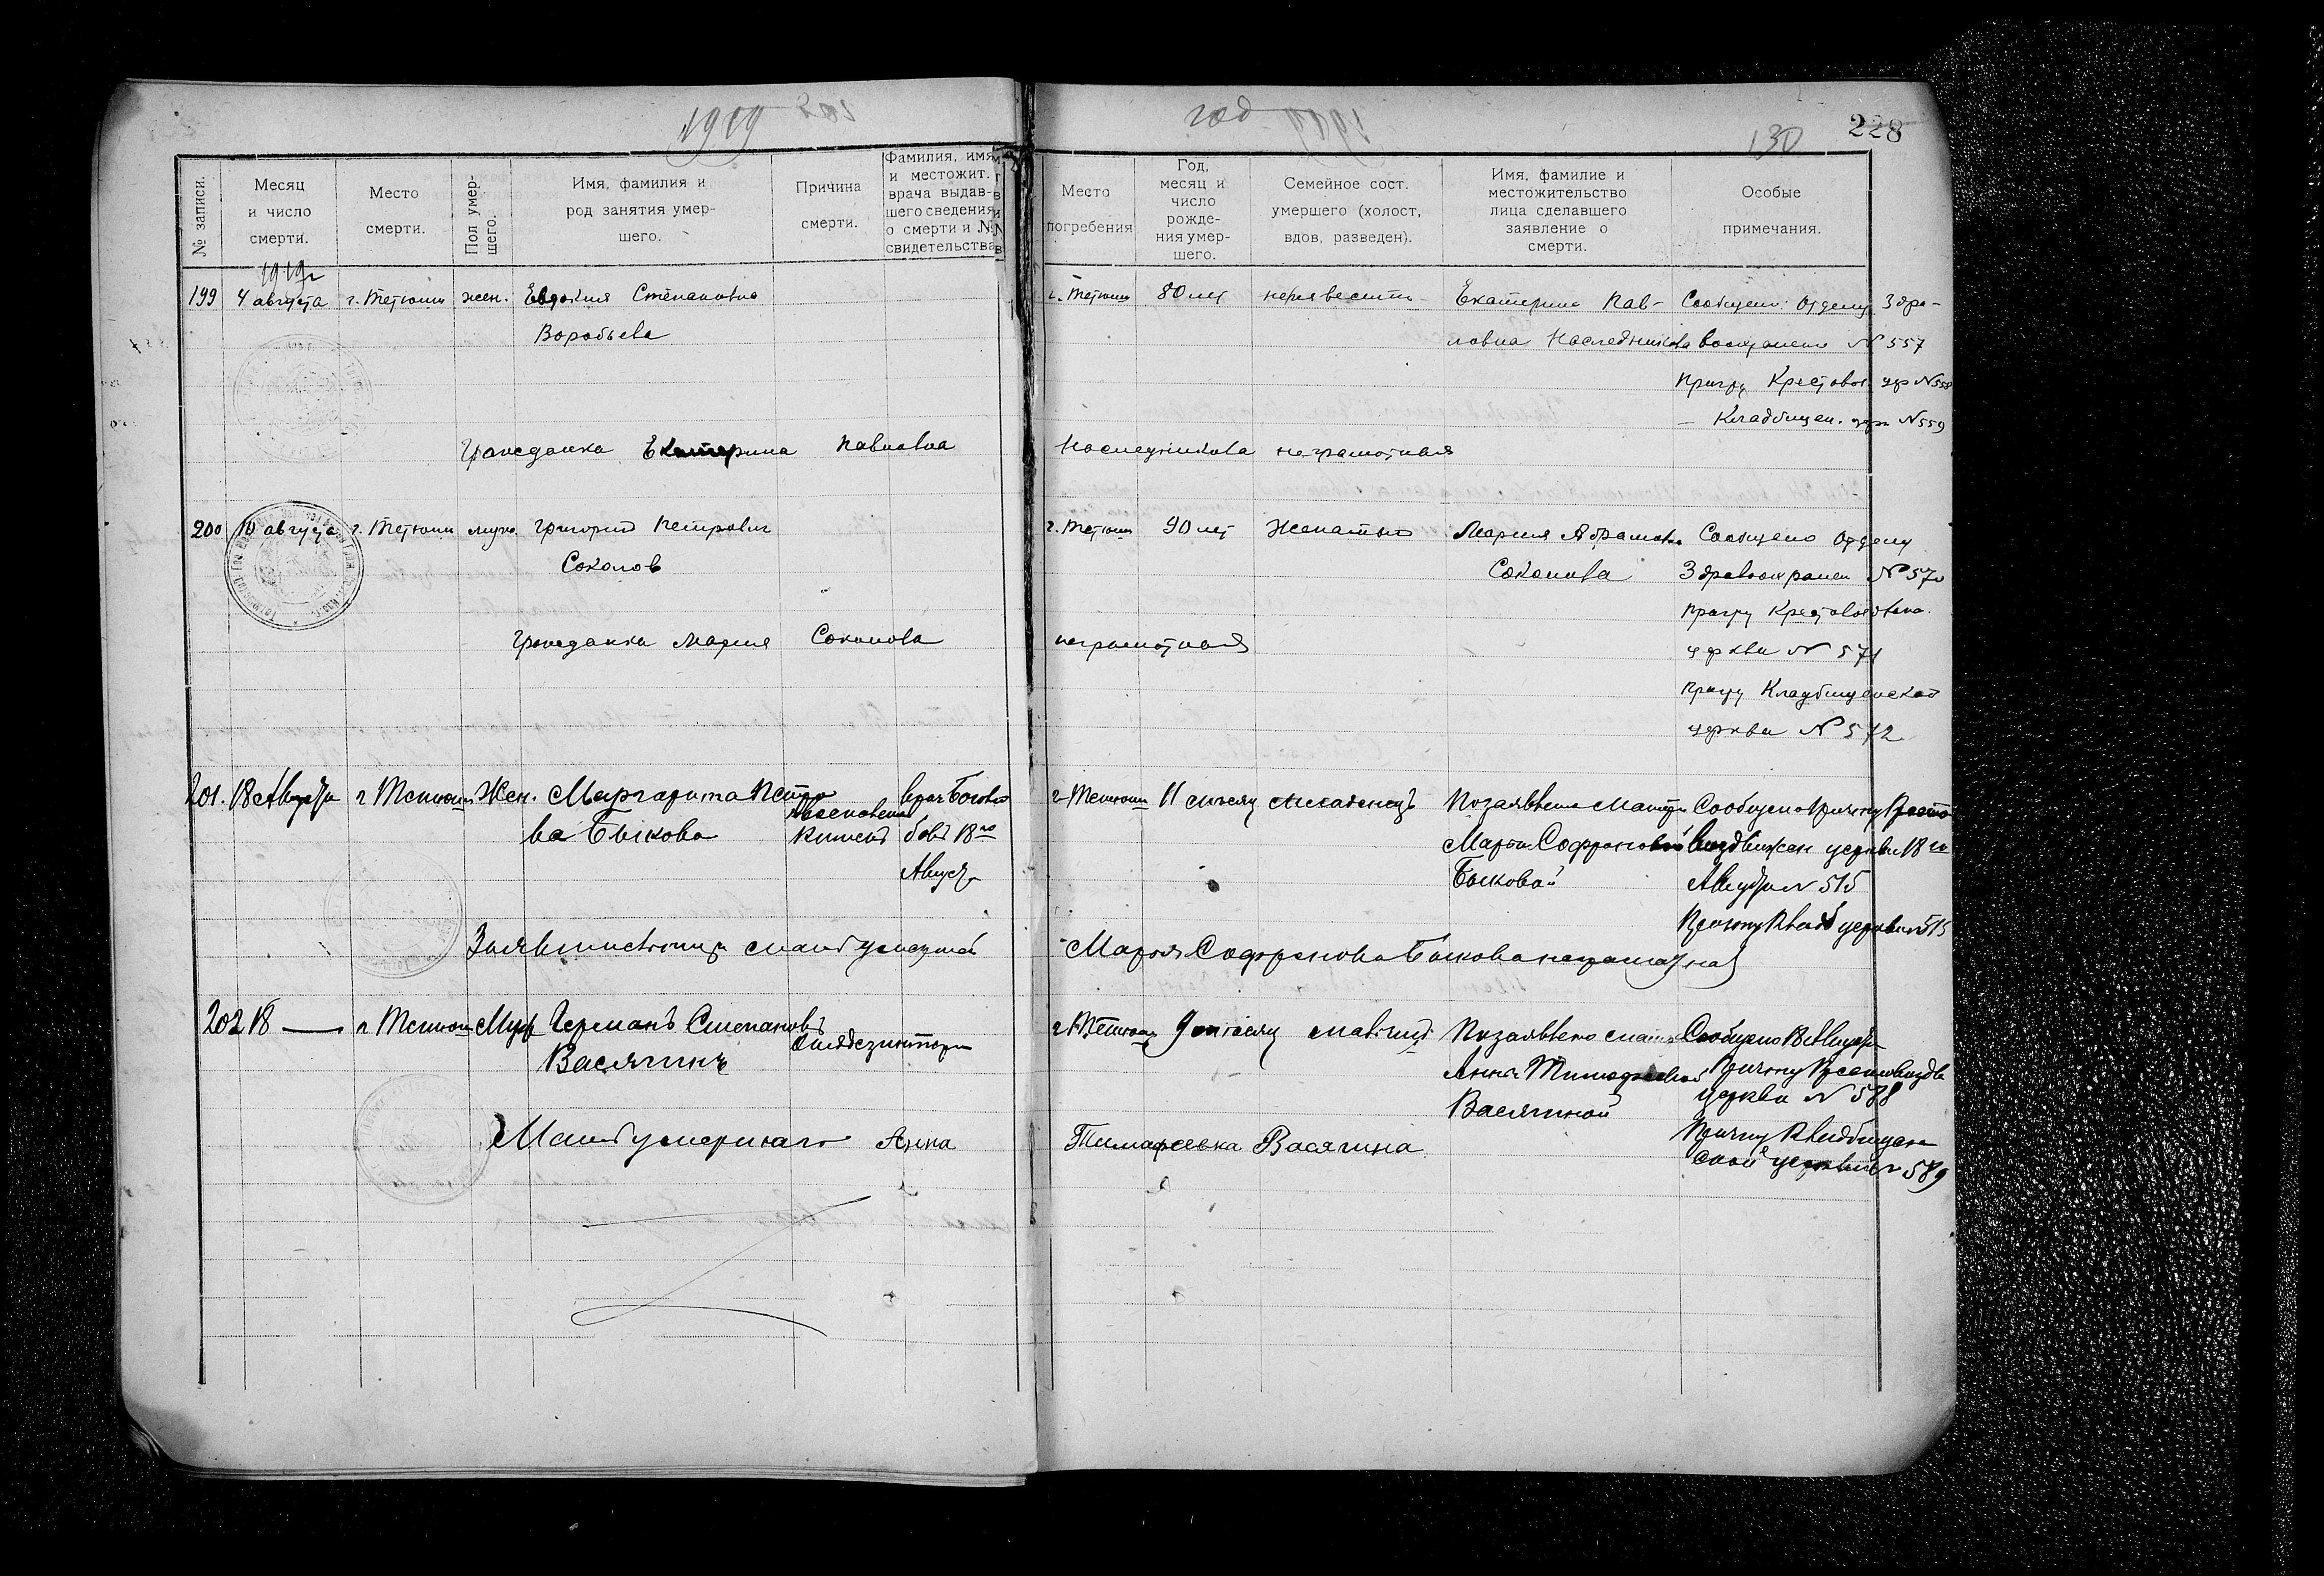 1919 год
130 228
№ записи.
Месяц и число смерти.
Место смерти.
Пол умер-шего.
Имя, фамилия и род занятия умер-шего.
Причина смерти.
Фамилия, имя и местожит. врача выдав-шего сведения о смерти и № свидетельства
Место погребения
Год, месяц и число рожде-ния умер-шего.
Семейное сост. умершего (холост, вдов, разведен).
Имя, фамилие и местожительство лица сделавшего заявление о смерти.
Особые примечания.
1919 г
199 4 августа г. Тетюши жен. Евдокия Степановна
Воробьева
г. Тетюши 80 лет Екатерина Пав-
ловна Наследникова
Сообщено: Отделу Здра-
воохранения № 557
Причту Крестовоз. цер № 558
— Кладбищен. церк № 559
Гражданка Екатерина Павловна Наследникова неграмотная
200 10 августа г. Тетюши муж. Григорий Петрович
Соколов
г. Тетюши 90 лет Женатый Мария Абрамовна
Соколова
Сообщено Отделу
Здравоохранен № 570
причту Крестовоздвижен.
церкви № 571
причу Кладбищенской
церкви № 572
Гражданка Мария Соколова неграмотная
201. 18 Августа г Тетюши Жен. Маргарита Петро
ва Быкова
кишекъ
врач
18го
Август
г Тетюши 11 месяц младенецъ По заявлению Матери
Марьи Софроновой
Быковой
Сообщено Причту Кресто
воздвижен церкви 18 го
Августа № 515
Причту Клад церкви 515
мать умершей Марья Софронова Быкова неграмотна
202 18 — г Тетюши Муж Германъ Степановъ
Васягинъ
г Тетюши 9 месяц По заявлению матери
Анны Тимофеевой
Васягиной
Сообщено 18 Августа
Причту Крестовоздв
церкви № 588
Причту Кладбищен
ской церкви № 589
Мать умершаго Анна Тимофеевна Васягина